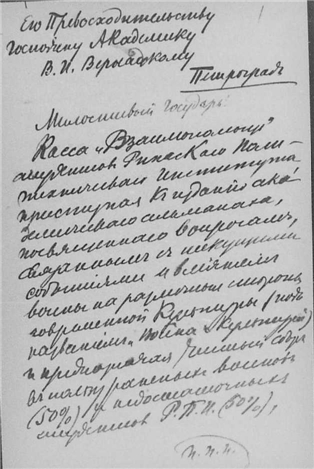 Его Превосходительству
Господину Академику
В. И. Вернадскому
Петроградъ
Милостивый Государь!
Касса „Взаимопомощь"
студентовъ Рижскаго Поли-
техническаго Института
приступая къ изданію ака-
демическаго альманаха,
посвященнаго вопросамъ,
связаннымъ съ текущими
событіями и вліяніемъ
войны на различныя стороны
современной культуры (подъ
названіемъ „Война и культура")
и предназначая чистый сборъ
въ пользу раненыхъ воиновъ
(50%) и недостаточныхъ
студентовъ Р.П.И. (50%),